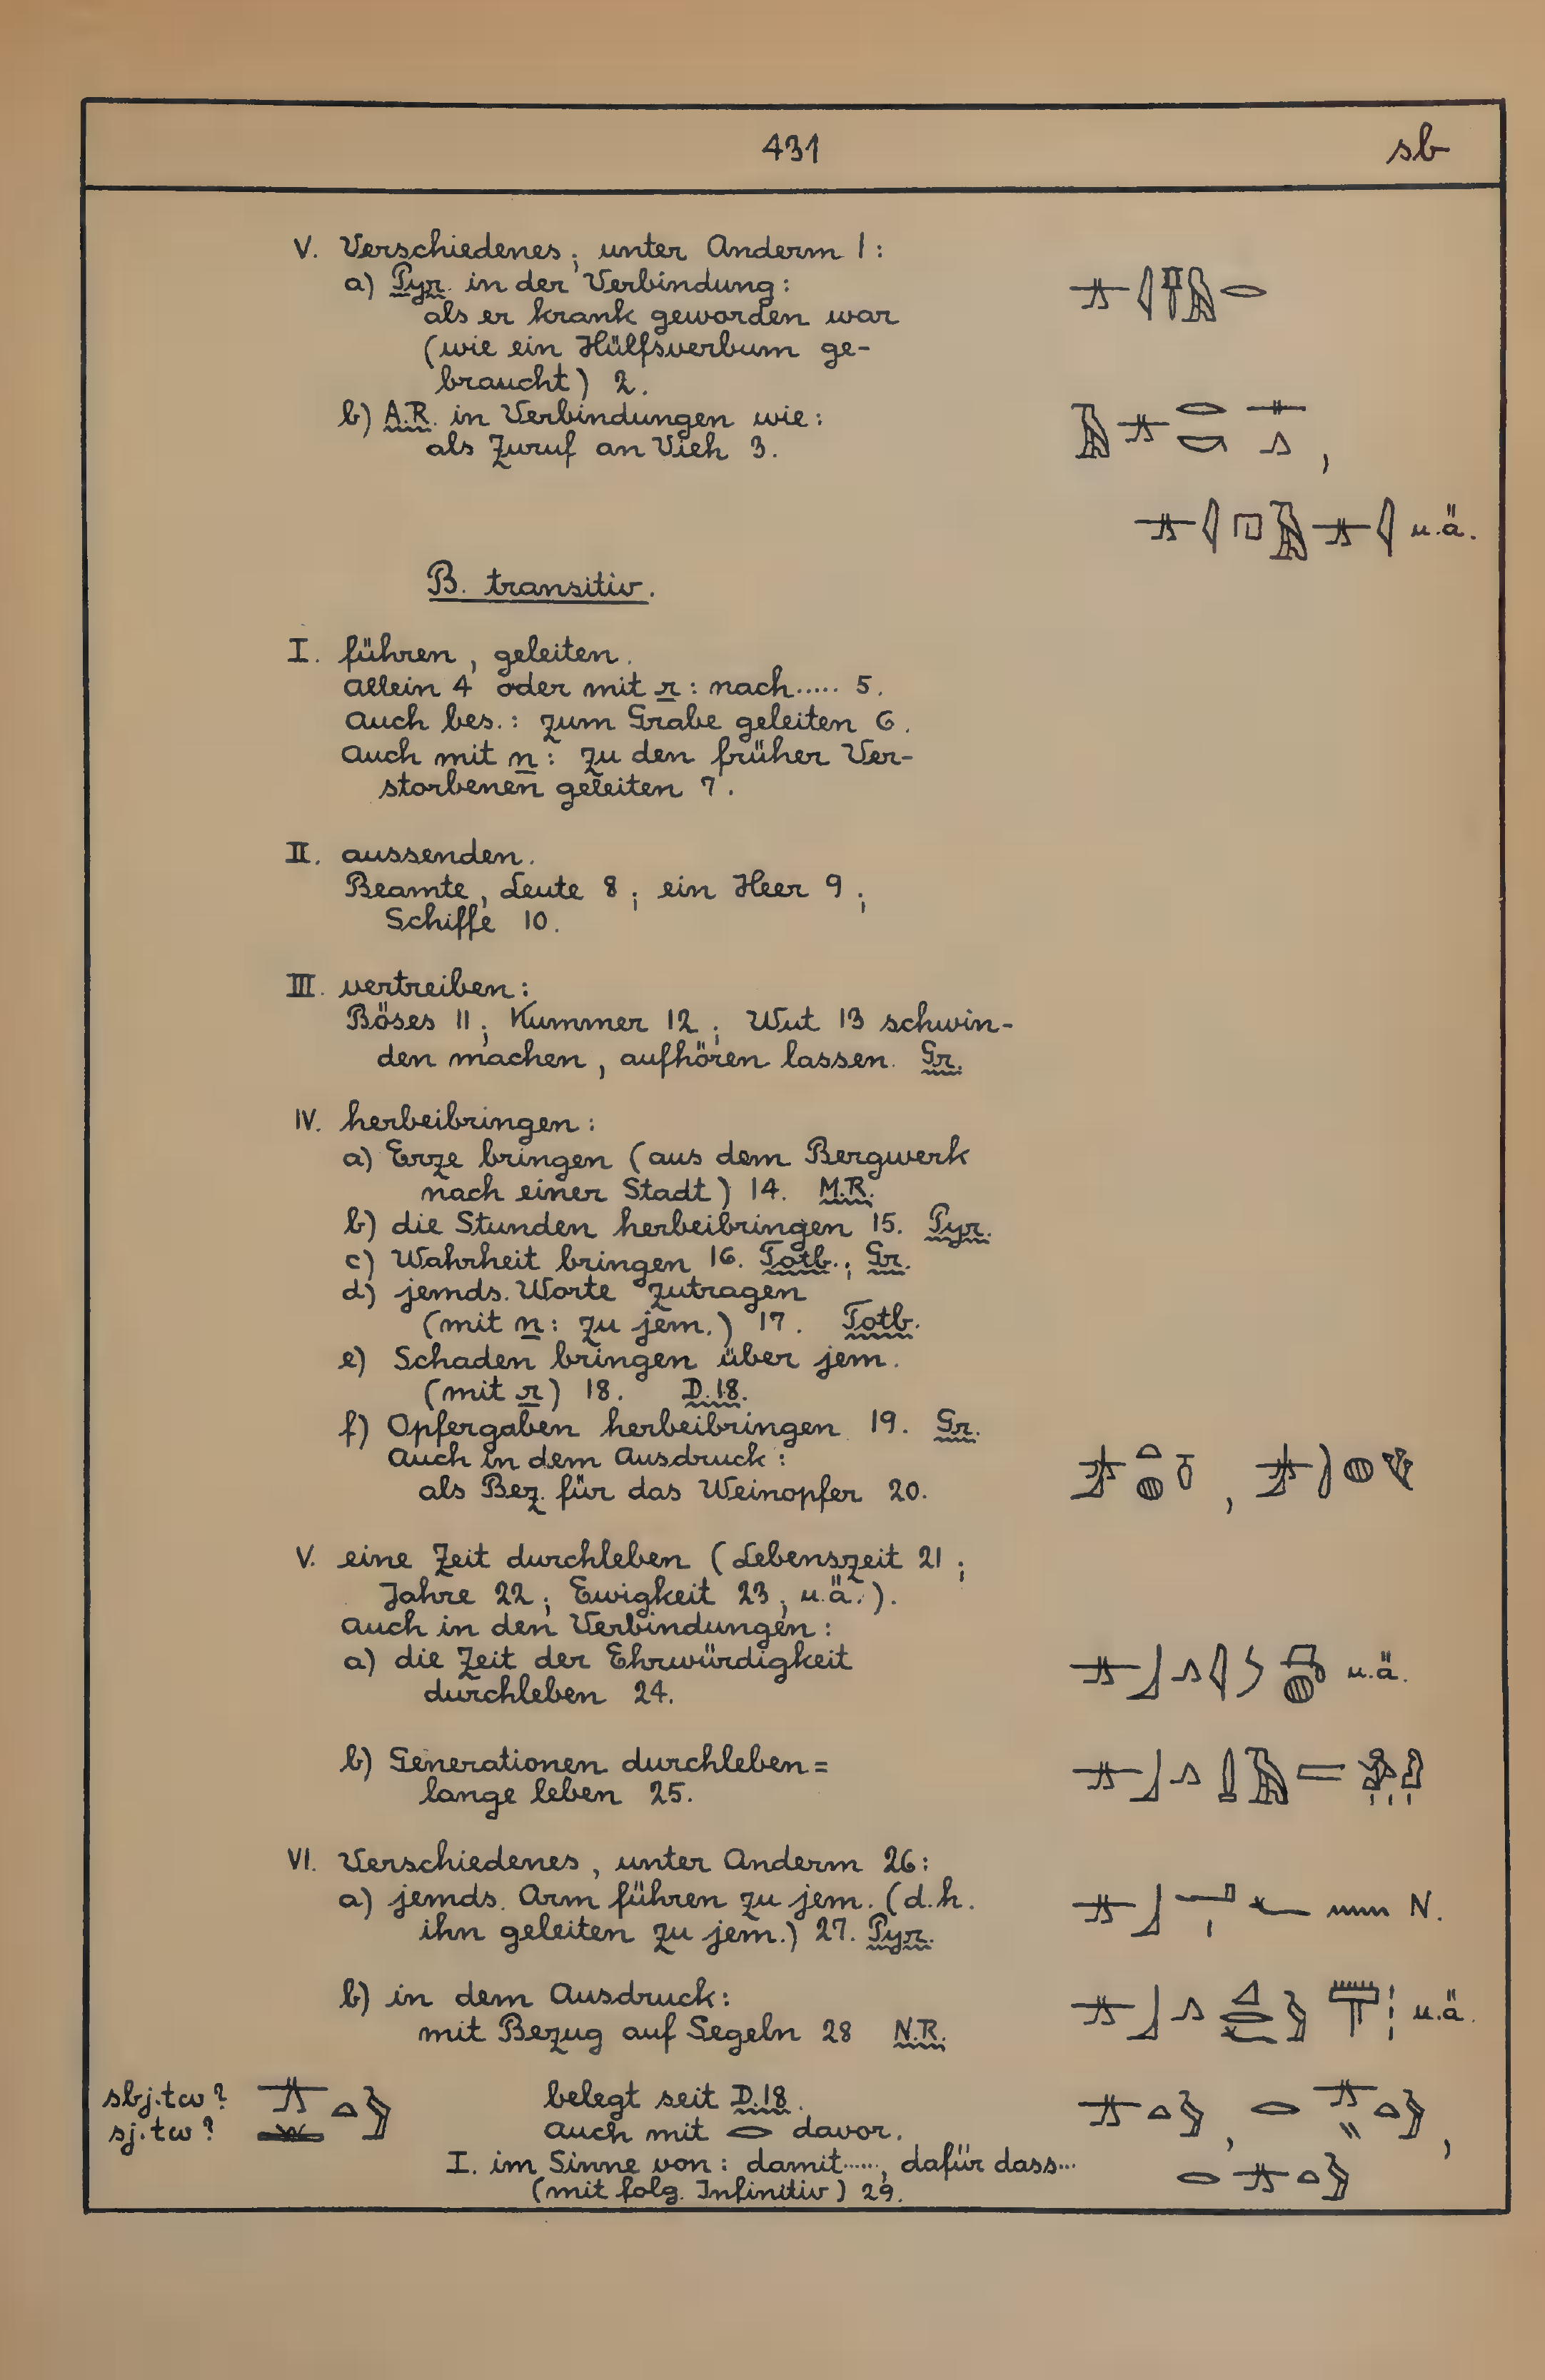 431
sb
V. Verschiedenes; unter Anderm 1:
a) Pyr. in der Verbindung:
als er krank geworden war
(wie ein Hülfsverbum ge-
braucht) 2.
b) A.R. in Verbindungen wie:
als Zuruf an Vieh 3.
u.ä.
B. transitiv.
I. führen, geleiten.
allein 4 oder mit r: nach..... 5.
Auch bes.: zum Grabe geleiten 6.
Auch mit n: zu den früher Ver-
storbenen geleiten 7.
II. aussenden.
Beamte, Leute 8; ein Heer 9;
Schiffe 10.
III. vertreiben:
Böses 11; Kummer 12; Wut 13 schwin-
den machen, aufhören lassen. Gr.
IV. herbeibringen:
a) Erze bringen (aus dem Bergwerk
nach einer Stadt) 14. M.R.
b) die Stunden herbeibringen 15. Pyr.
c) Wahrheit bringen 16. Totb.; Gr.
d) jemds. Worte zutragen
(mit n: zu jem.) 17. Totb.
e) Schaden bringen über jem.
(mit r) 18. D.18.
f) Opfergaben herbeibringen 19. Gr.
Auch in dem Ausdruck:
als Bez. für das Weinopfer 20.
V. eine Zeit durchleben (Lebenszeit 21;
Jahre 22; Ewigkeit 23, u.ä.).
Auch in den Verbindungen:
a) die Zeit der Ehrwürdigkeit
durchleben 24.
u.ä.
b) Generationen durchleben =
lange leben 25.
VI. Verschiedenes, unter Anderm 26:
a) jemds. Arm führen zu jem. (d.h.
ihn geleiten zu jem.) 27. Pyr.
N.
b) in dem Ausdruck:
mit Bezug auf Segeln 28 N.R.
u.ä.
sbj.tw? belegt seit D.18.
sj.tw? Auch mit davor.
I. im Sinne von: damit......, dafür dass...
(mit folg. Infinitiv) 29.